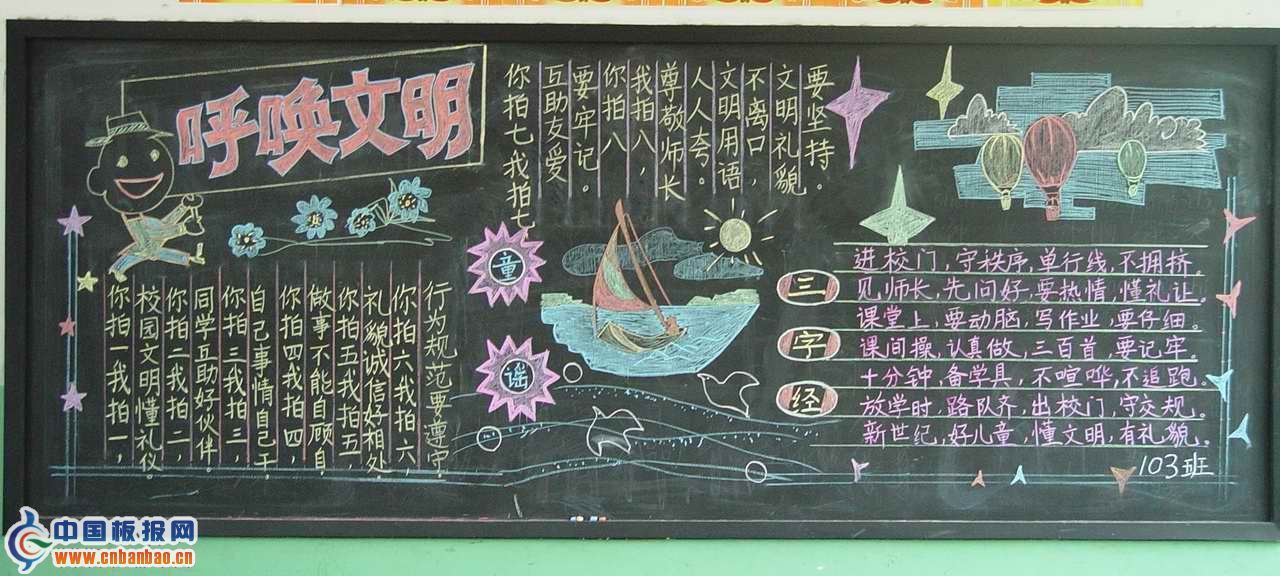 呼唤文明
你拍一我拍一，
校园文明懂礼仪
你拍二我拍二，
同学互助好伙伴。
你拍三我拍三，
自己事情自己干
你拍四我拍四，
做事不能自顾自
你拍五我拍五，
礼貌诚信好相处
你拍六我拍六，
行为规范要遵守
你拍七我拍七，
互助友爱
要牢记。
你拍八
我拍八，
尊敬师长
人人夸。
文明用语
不离口，
文明礼貌
要坚持。
童
谣
三
字
经
进校门，守秩序，单行线，不拥挤。
见师长，先问好，要热情，懂礼让。
课堂上，要动脑，写作业，要仔细。
课间操，认真做，三百首，要记牢。
十分钟，备学具，不喧哗，不追跑。
放学时，路队齐，出校门，守交规。
新世纪，好儿童，懂文明，有礼貌。
103班
中国板报网
www.cnbanbao.cn